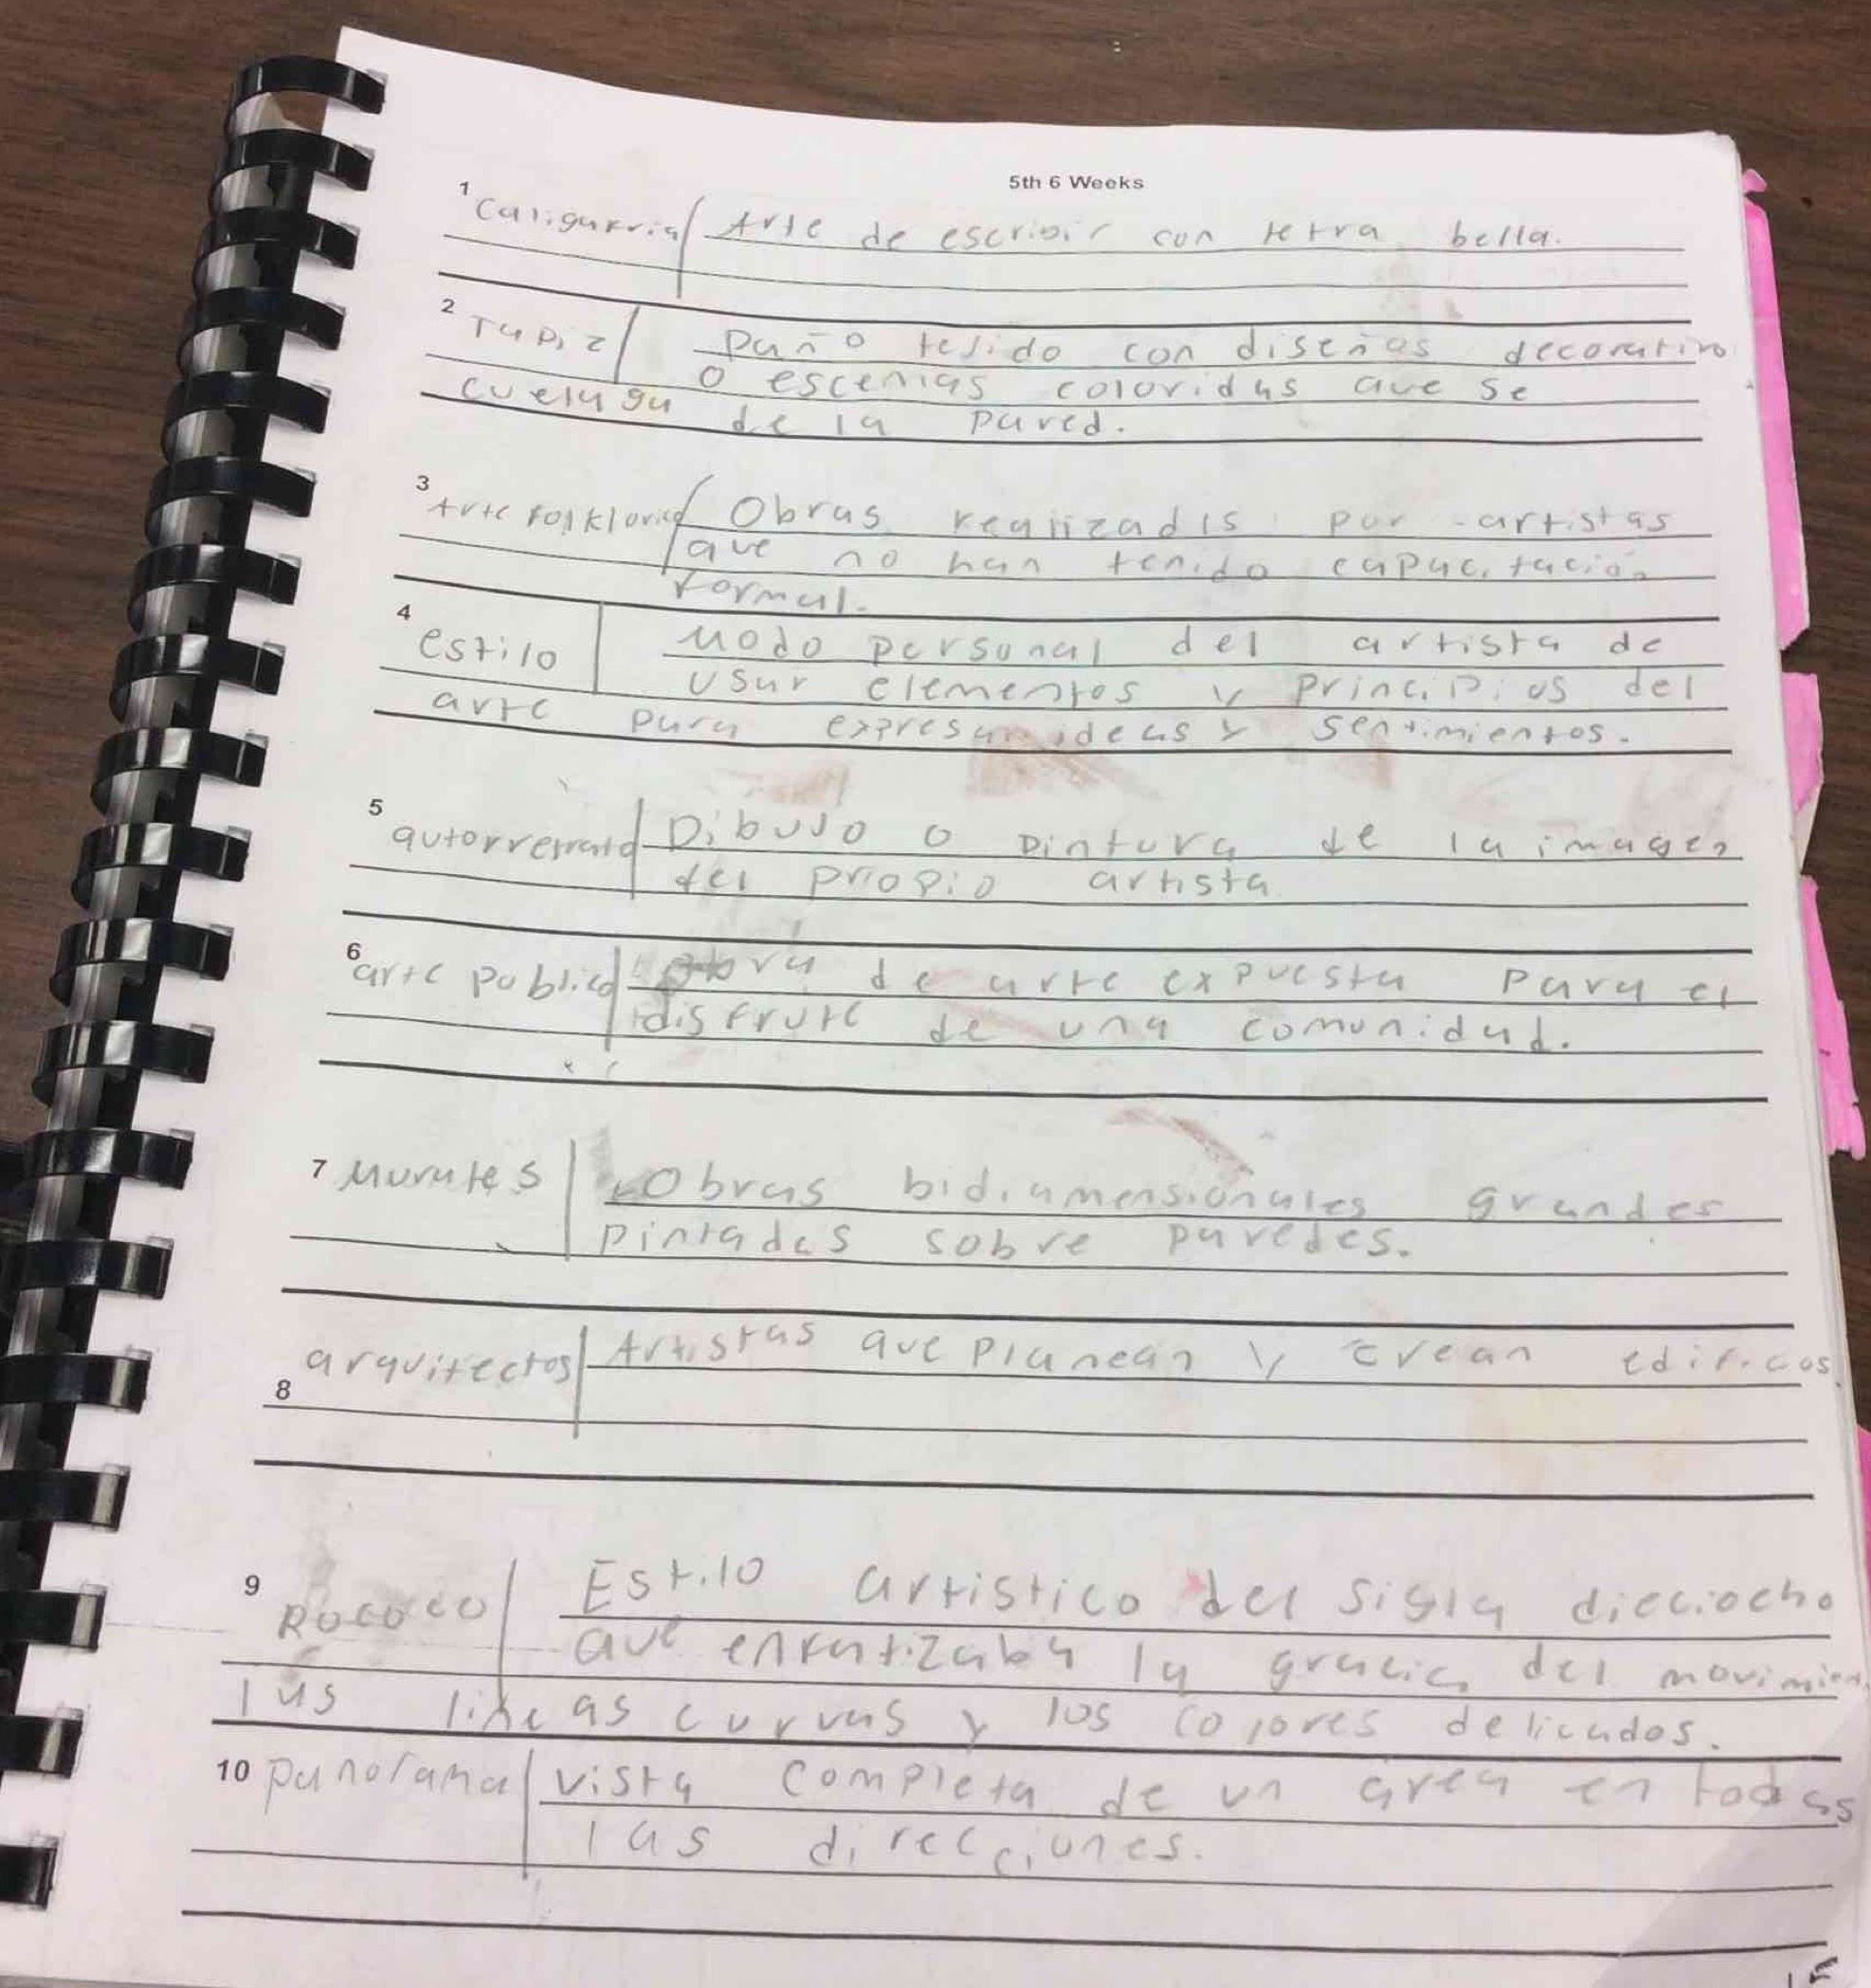 5th 6 Weeks
1 Caligafría Arte de escribir con letra bella.
2 Tapiz Paño tejido con diseños decorativo
o escenias coloridas que se
cuelaga de la pared.
3 Arte folklorico Obras realizadas por artistas
que no han tenido capacitación
formal.
4 estilo Modo personal del artista de
usar elementos y principios del
arte para expresar ideas y sentimientos.
5 autorretrato Dibujo o pintura de la imagen
del propio artista
6 arte publico Obra de arte expuesta para el
disfrute de una comunidad.
7 Murales Obras bidiamensionales grandes
pintadas sobre paredes.
arquitectos Artistas que planean y crean edificos.
8
9 Rococo Estilo artistico del sigla dieciocho
que enfatizaba la gracia del movimien
las lineas curvas y los colores delicados.
10 panorama vista completa de un área en todas
las direcciones.